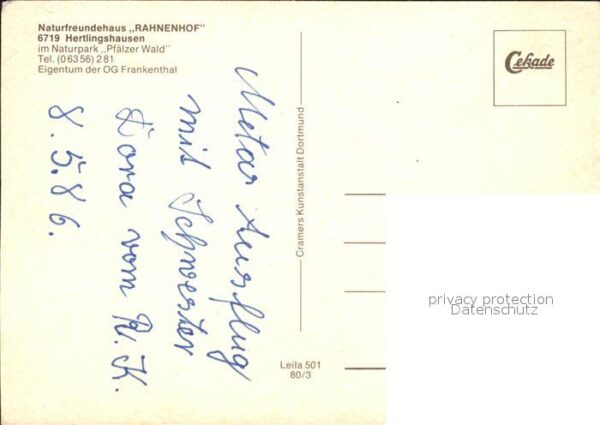 Naturfreundehaus „RAHNENHOF"
6719 Hertlingshausen
im Naturpark „Pfälzer Wald"
Tel. (06356) 281
Eigentum der OG Frankenthal
Metas Ausflug
mit Schwester
Dora vom R. K.
8. 5. 86.
Cramers Kunstanstalt Dortmund
Cekade
Leila 501
80/3
privacy protection
Datenschutz